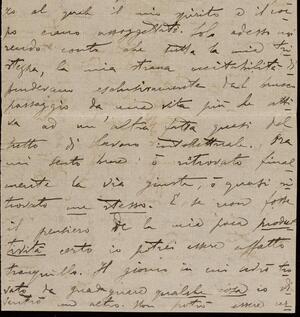 ro al quale il mio spirito e il cor
po erano assoggettati. Solo adesso mi
rendo conto che tutta la mia tri
stezza, la mia strana eccitabilità di
pendevano esclusivamente dal
passaggio da una vita più che atti
va ad un'altra fatta quasi del
tutto di lavoro intellettuale. Ora
mi sento bene: ò ritrovato final
mente la via giusta, ò quasi ri
trovato me stesso. E se non fosse
il pensiero de la mia poca produt
tività certo io potrei essere affatto
tranquillo. Il giorno in cui avrò tro
vato da guadagnare qualche cosa io
entrò un altro. Non potrò essere